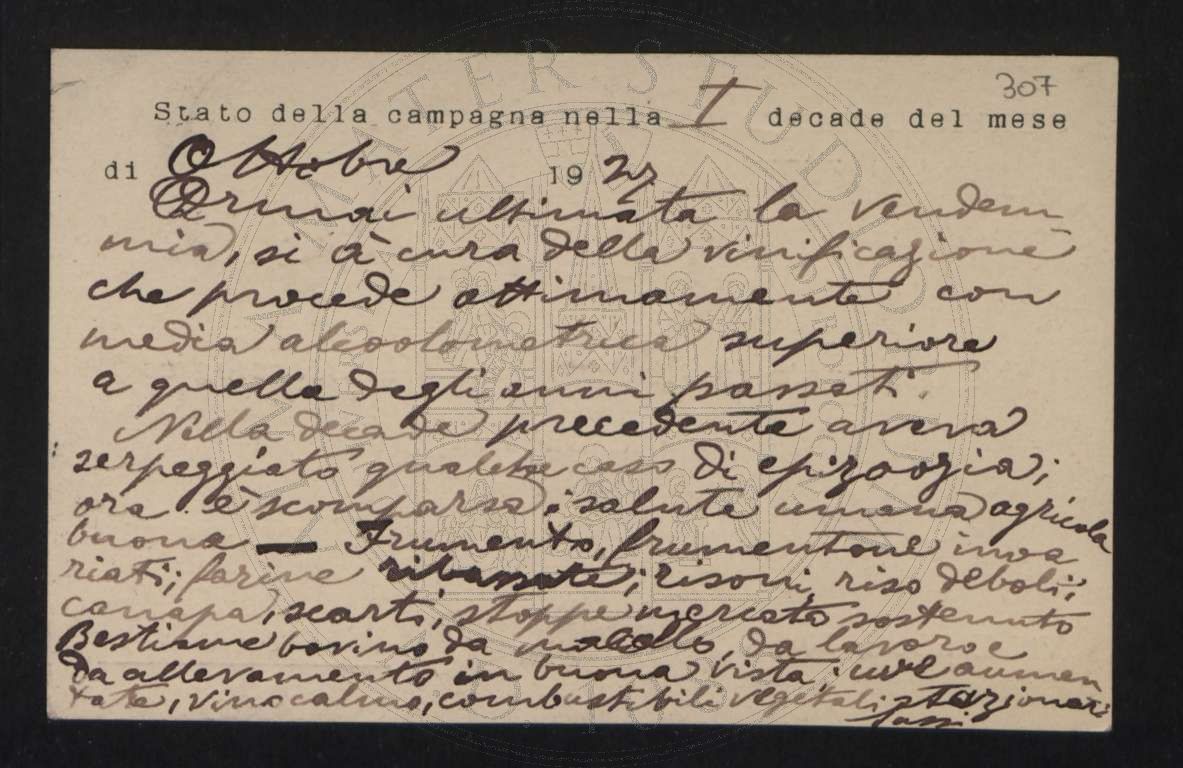 307
Stato della campagna nella I decade del mese
di Ottobre 1927
Ormai ultimata la vendem
mia, si à cura della vinificazione
che procede ottimamente con
media alcoolometrica superiore
a quella degli anni passati.
Nella decade precedente aveva
serpeggiato qualche caso di epizoozia;
ora è scomparsa: salute umana agricola
buona — Frumento, frumentone inva
riati; farine ribassate; risoni, riso deboli;
canapa, scarti, stoppe mercato sostenuto
Bestiame bovino da macello, da lavoro e
da allevamento in buona vista; uve aumen
tate, vino calmo, combustibili vegetali stazionari